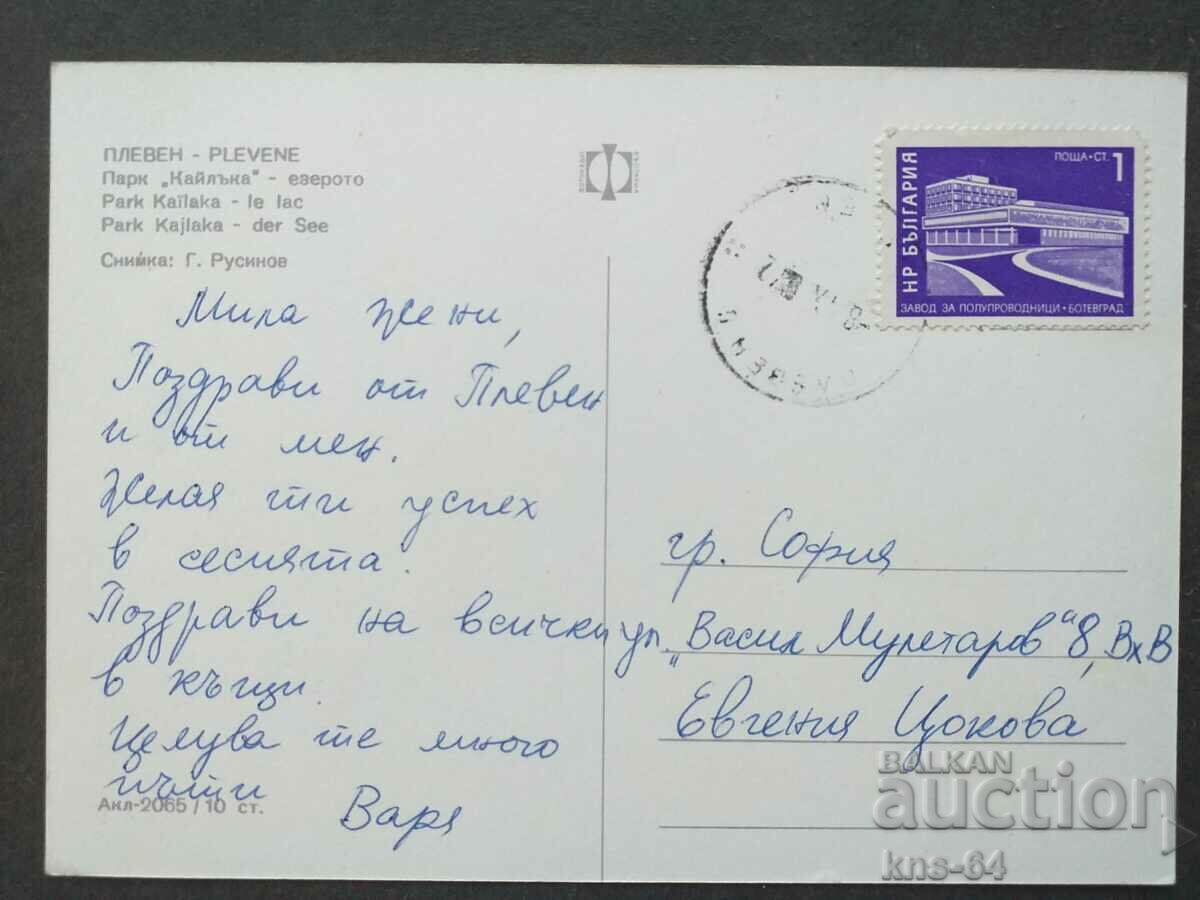 ПЛЕВЕН - PLEVENE
Парк „Кайлъка" - езерото
Park Kaïlaka - le lac
Park Kajlaka - der See
Снимка: Г. Русинов
Мила Жени,
Поздрави от Плевен
и от мен.
Желая ти успех
в сесията.
Поздрави на всички
в къщи.
Целува те много
пъти
Варя
Акл-2065/10 ст.
ПОЩА•СТ. 1
НР БЪЛГАРИЯ
ЗАВОД ЗА ПОЛУПРОВОДНИЦИ•БОТЕВГРАД
гр. София
ул. „Васил Мулетаров" 8, Вх В
Евгения Цокова
BALKAN
auction
kns-64